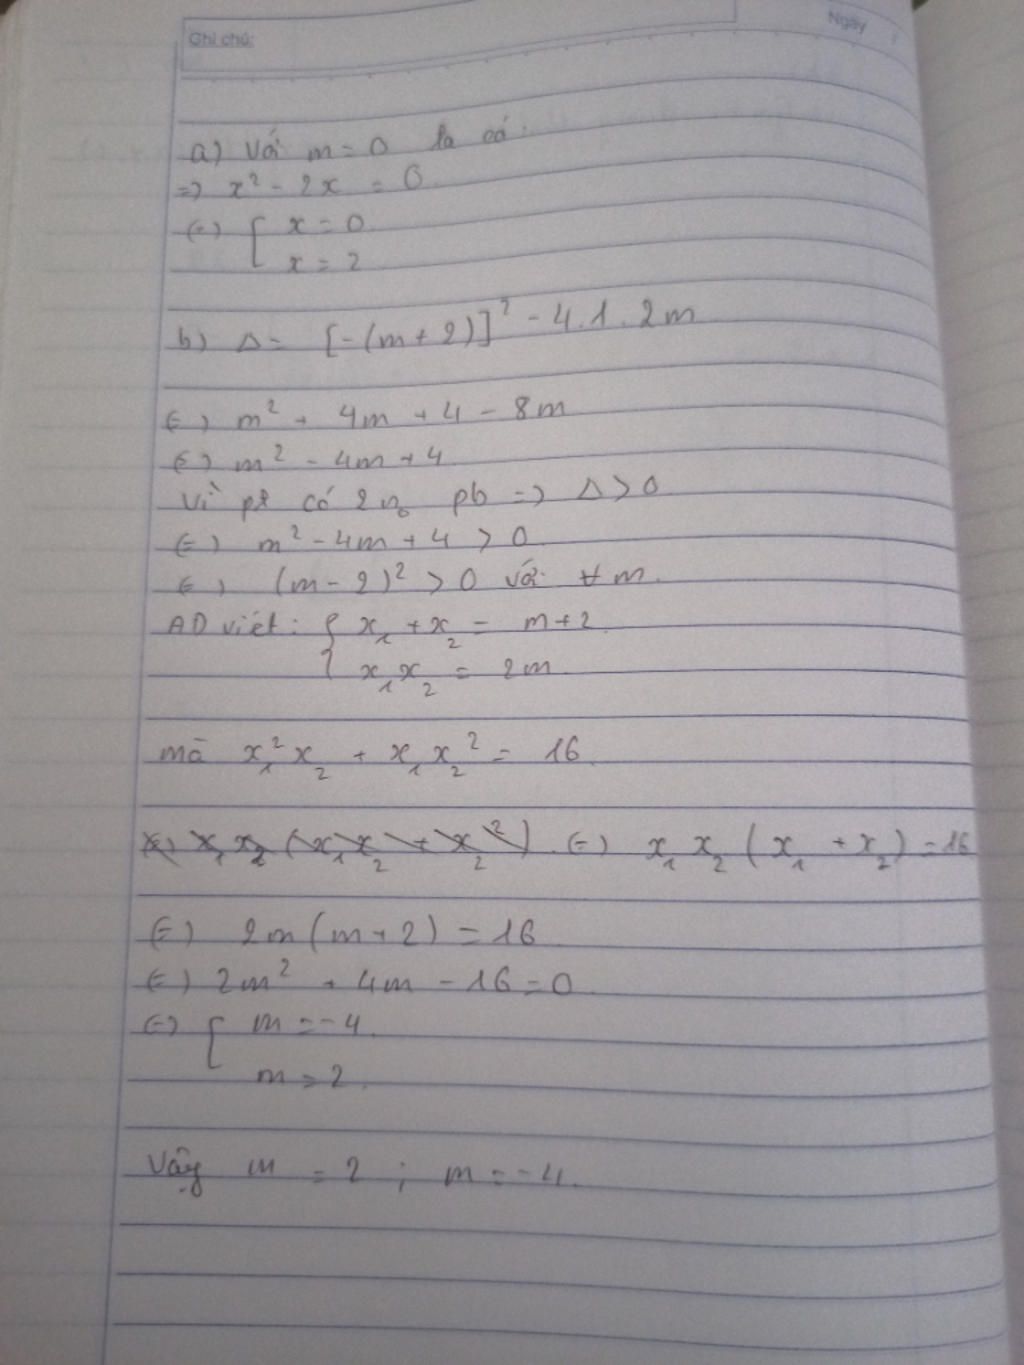 Ghi chú:
Ngày
a) Với m = 0 ta có:
=> x² - 2x = 0
(=) [ x = 0
x = 2
b) Δ = [-(m+2)]² - 4.1.2m
(=) m² + 4m + 4 - 8m
(=) m² - 4m + 4
Vì pt có 2 n₀ pb => Δ > 0
(=) m² - 4m + 4 > 0
(=) (m - 2)² > 0 với ∀ m.
AD viét: { x₁ + x₂ = m + 2
x₁x₂ = 2m
mà x₁²x₂ + x₁x₂² = 16
(=) x₁x₂ (x₁x₂ + x₂²) . (=) x₁x₂ (x₁ + x₂) = 16
(=) 2m(m+2) = 16
(=) 2m² + 4m - 16 = 0
(=) [ m = -4
m = 2.
Vậy m = 2 ; m = -4.